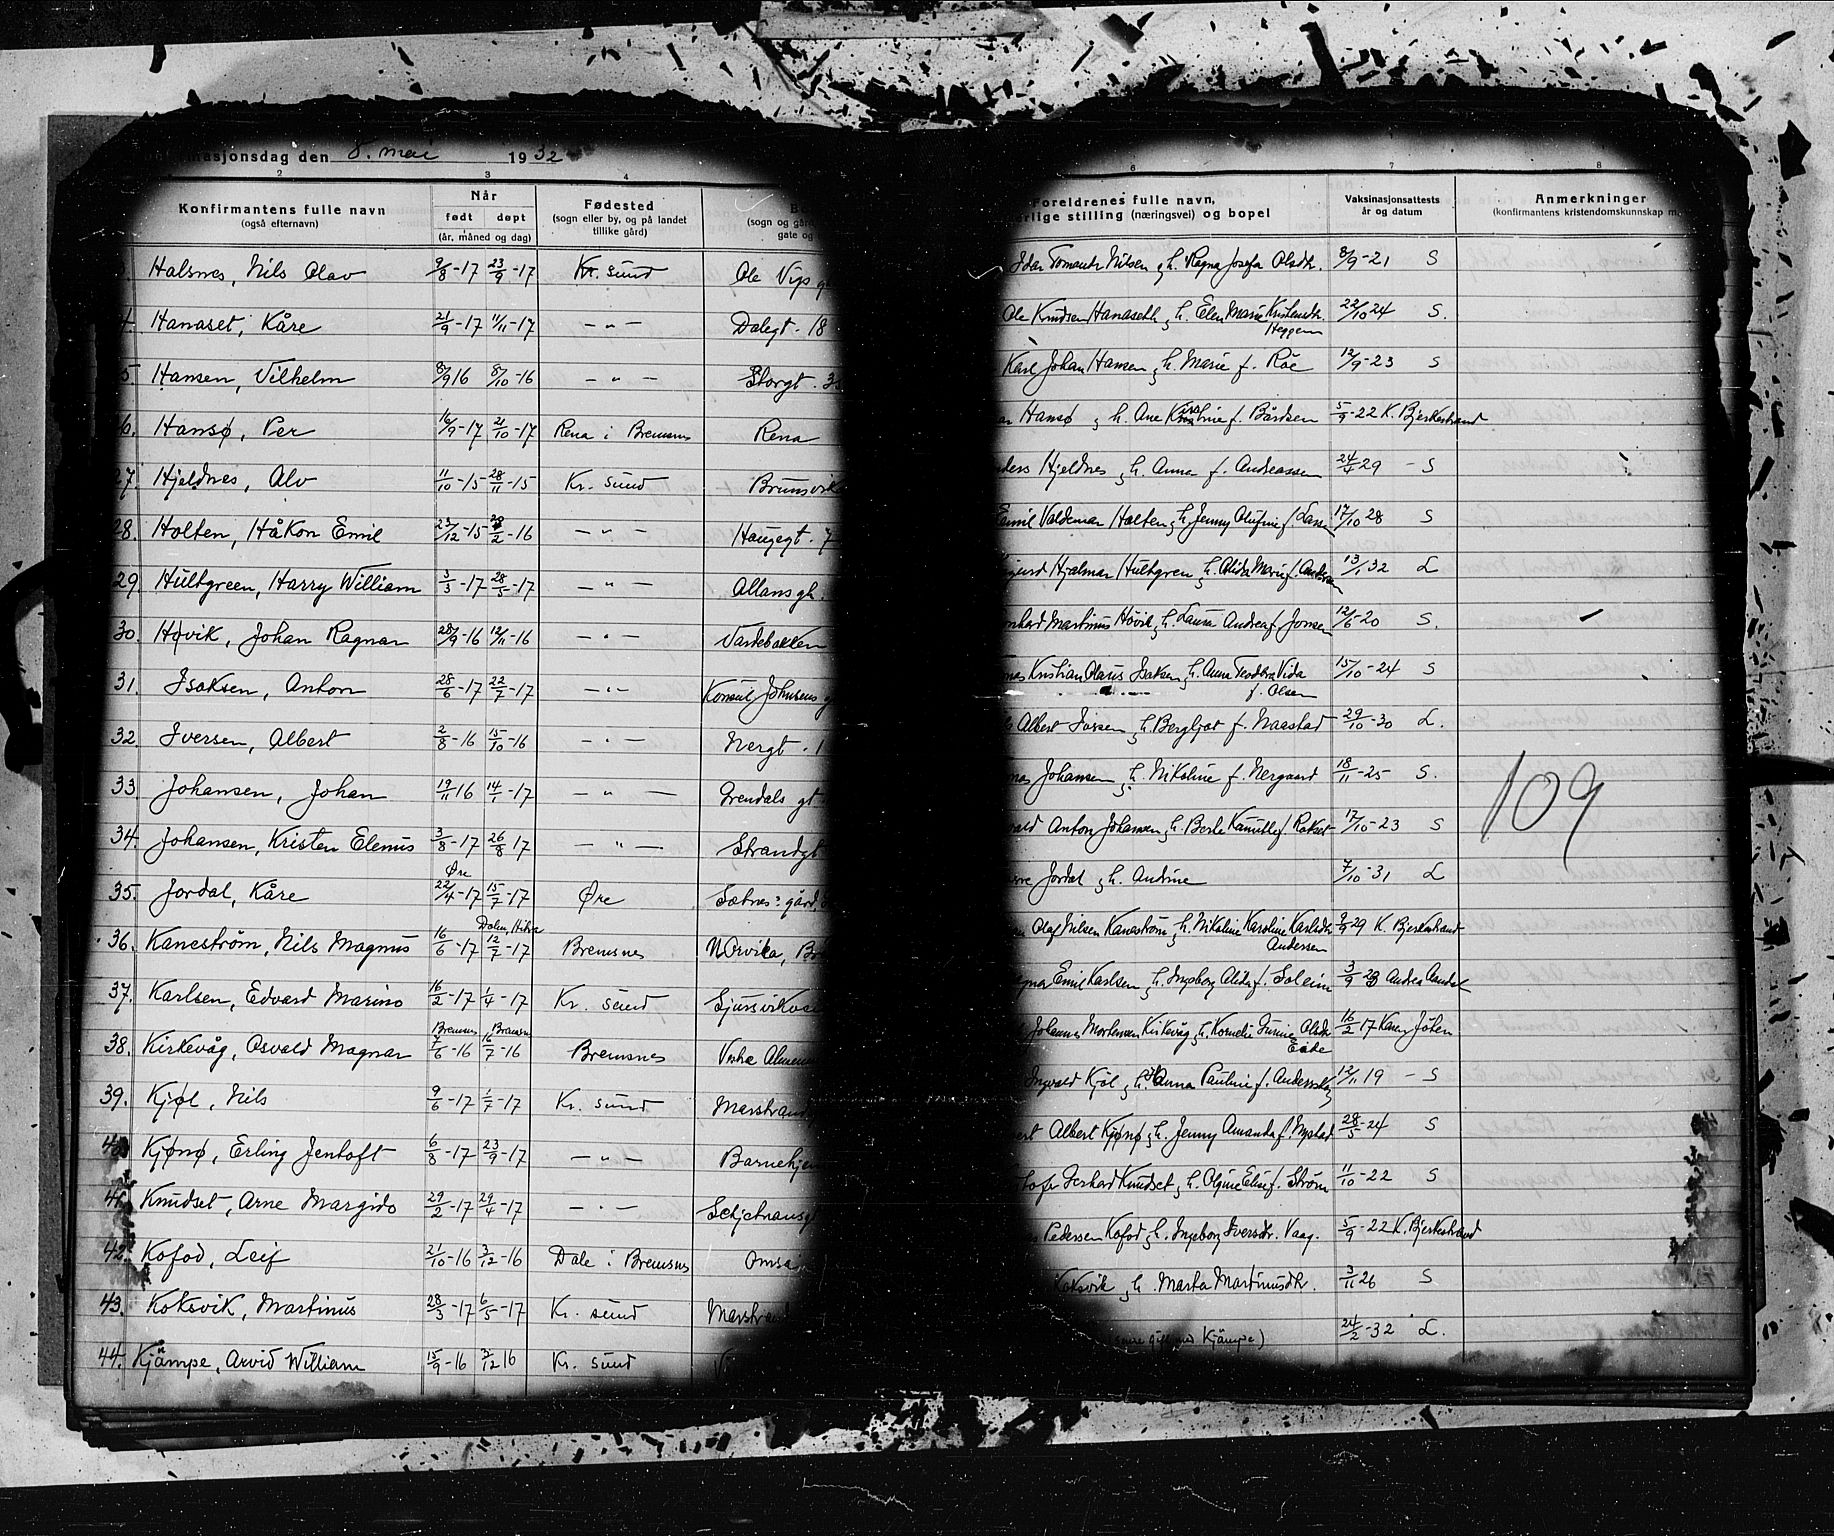 masjonsdag den 8. mai 1932
2 3 4 6 7 8
Konfirmantens fulle navn
(også efternavn)
Når
født døpt
(år, måned og dag)
Fødested
(sogn eller by, og på landet
tillike gård)
(sogn og gård
gate og
Foreldrenes fulle navn,
rlige stilling (næringsvei) og bopel
Vaksinasjonsattests
år og datum
Anmerkninger
(konfirmantens kristendomskunnskap m.
Halsnes, Nils Olav 9/8-17 23/9-17 Kr. sund Ole Vips g Nilsen g h. Ragna Josefa Olsdtr. 8/9-21 S
Hanaset, Kåre 21/9-17 11/11-17 - " - Dalegt. 18 Ole Knudsen Hanaseth g h. Elen Marie Kristensdtr. 22/10 24 S.
Heggem
5 Hansen, Vilhelm 8/9 16 8/10-16 - " - Storgt. 3 Karl Johan Hansen g h. Marie f. Röe 12/9-23 S
6. Hansø, Per 16/9-17 21/10-17 Rena i Bremsnes Rena Hansø g h. Ane f. Bårdsen 5/9-22 K. Bjerkestrand
27. Hjeldnes, Alv 11/10-15 28/11-15 Kr. sund Brunsvik ders Hjeldnes g h. Anna f. Andreassen 24/4 29 - S
28. Holten, Håkon Emil 23/12-15 /2-16 - " - Haugegt. 7 Emil Valdemar Holten g h. Jenny Olufine f. Larsen 17/10 28 S
29. Hultgreen, Harry William 3/3-17 28/5-17 - " - Allans gt. Hjalmar Hultgren g h. Alida Marie f. 13/1 32 L
30. Høvik, Johan Ragnar 28/9-16 12/11-16 - " - Vardebakken nhard Martinus Hövik g h. Laura Andrea f. Jonsen 12/6-20 S.
31. Isaksen, Anton 28/6-17 22/7-17 - " - Konsul Johnsens g Kristian Olaus Isaksen g h. Anna Teodora Vida 15/10-24 S
f. Olsen
32. Iversen, Albert 2/8-16 15/10-16 - " - Nergt. 1 Albert Iversen g h. Bergljot f. Naastad 29/10-30 L.
33 Johansen, Johan 19/11 16 14/1-17 - " - Grendals gt nas Johansen g h. Nikoline f. Nergaard 18/11-25 S.
34. Johansen, Kristen Elenus 3/8-17 26/8 17 - " - Strandgt vald Anton Johansen g h. Berle Kamilla f. Rokset 17/10-23 S
Øre
35. Jordal, Kåre 22/4-17 15/7-17 Øre Sætnes' gård, Jordal g h. Andrine 7/10-31 L
Dalen, Hitra
36. Kaneström, Nils Magnus 16/6-17 12/7-17 Bremsnes N. Orvika, Br Olaf Nilsen Kaneström g h. Nikoline Karoline Karlsdtr 9/9 29 K. Bjerkestrand
Andersen
37. Karlsen, Edvard Marino 16/2-17 1/4-17 Kr. sund Sjursvikvei Emil Karlsen g h. Ingborg Alida f. Soleim 3/9 23 Andrea Aandal
Bremsnes Bremsnes
38. Kirkevåg, Osvald Magnar 7/6-16 16/7-16 Bremsnes Vestre Almenn Johannes Mortensen Kirkevåg g h. Kornelie Olsdtr 16/2 17 Karen Johen
Eide
39. Kjøl, Nils 9/6-17 1/7-17 Kr. sund Marstrand Ingvald Kjöl g h. Anna Pauline f. 12/11 19 - S
40. Kjønø, Erling Jentoft 6/8-17 23/9-17 - " - Barnehjem ert Albert Kjønø g h. Jenny Amanda f. Nystad 28/5-24 S
41. Knudset, Arne Margido 29/2-17 29/4-17 - " - Schjetnansgt tofer Gerhard Knudset g h. Olgine Elise f. Ström 11/10-22 S
42. Kofod, Leif 21/10-16 3/12-16 Dale i Bremsnes Omsa Pedersen Kofod g h. Ingeborg Iversdtr. Vaag. 5/9-22 K. Bjerkestrand
43. Koksvik, Martinus 28/3-17 6/5-17 Kr. sund Marstrand Koksvik g h. Marta Martinusdtr. 3/11 26 S
44. Kjämpe, Arvid William 15/9-16 3/12 16 Kr. sund V gift med Kjämpe) 24/2-32 L.
109